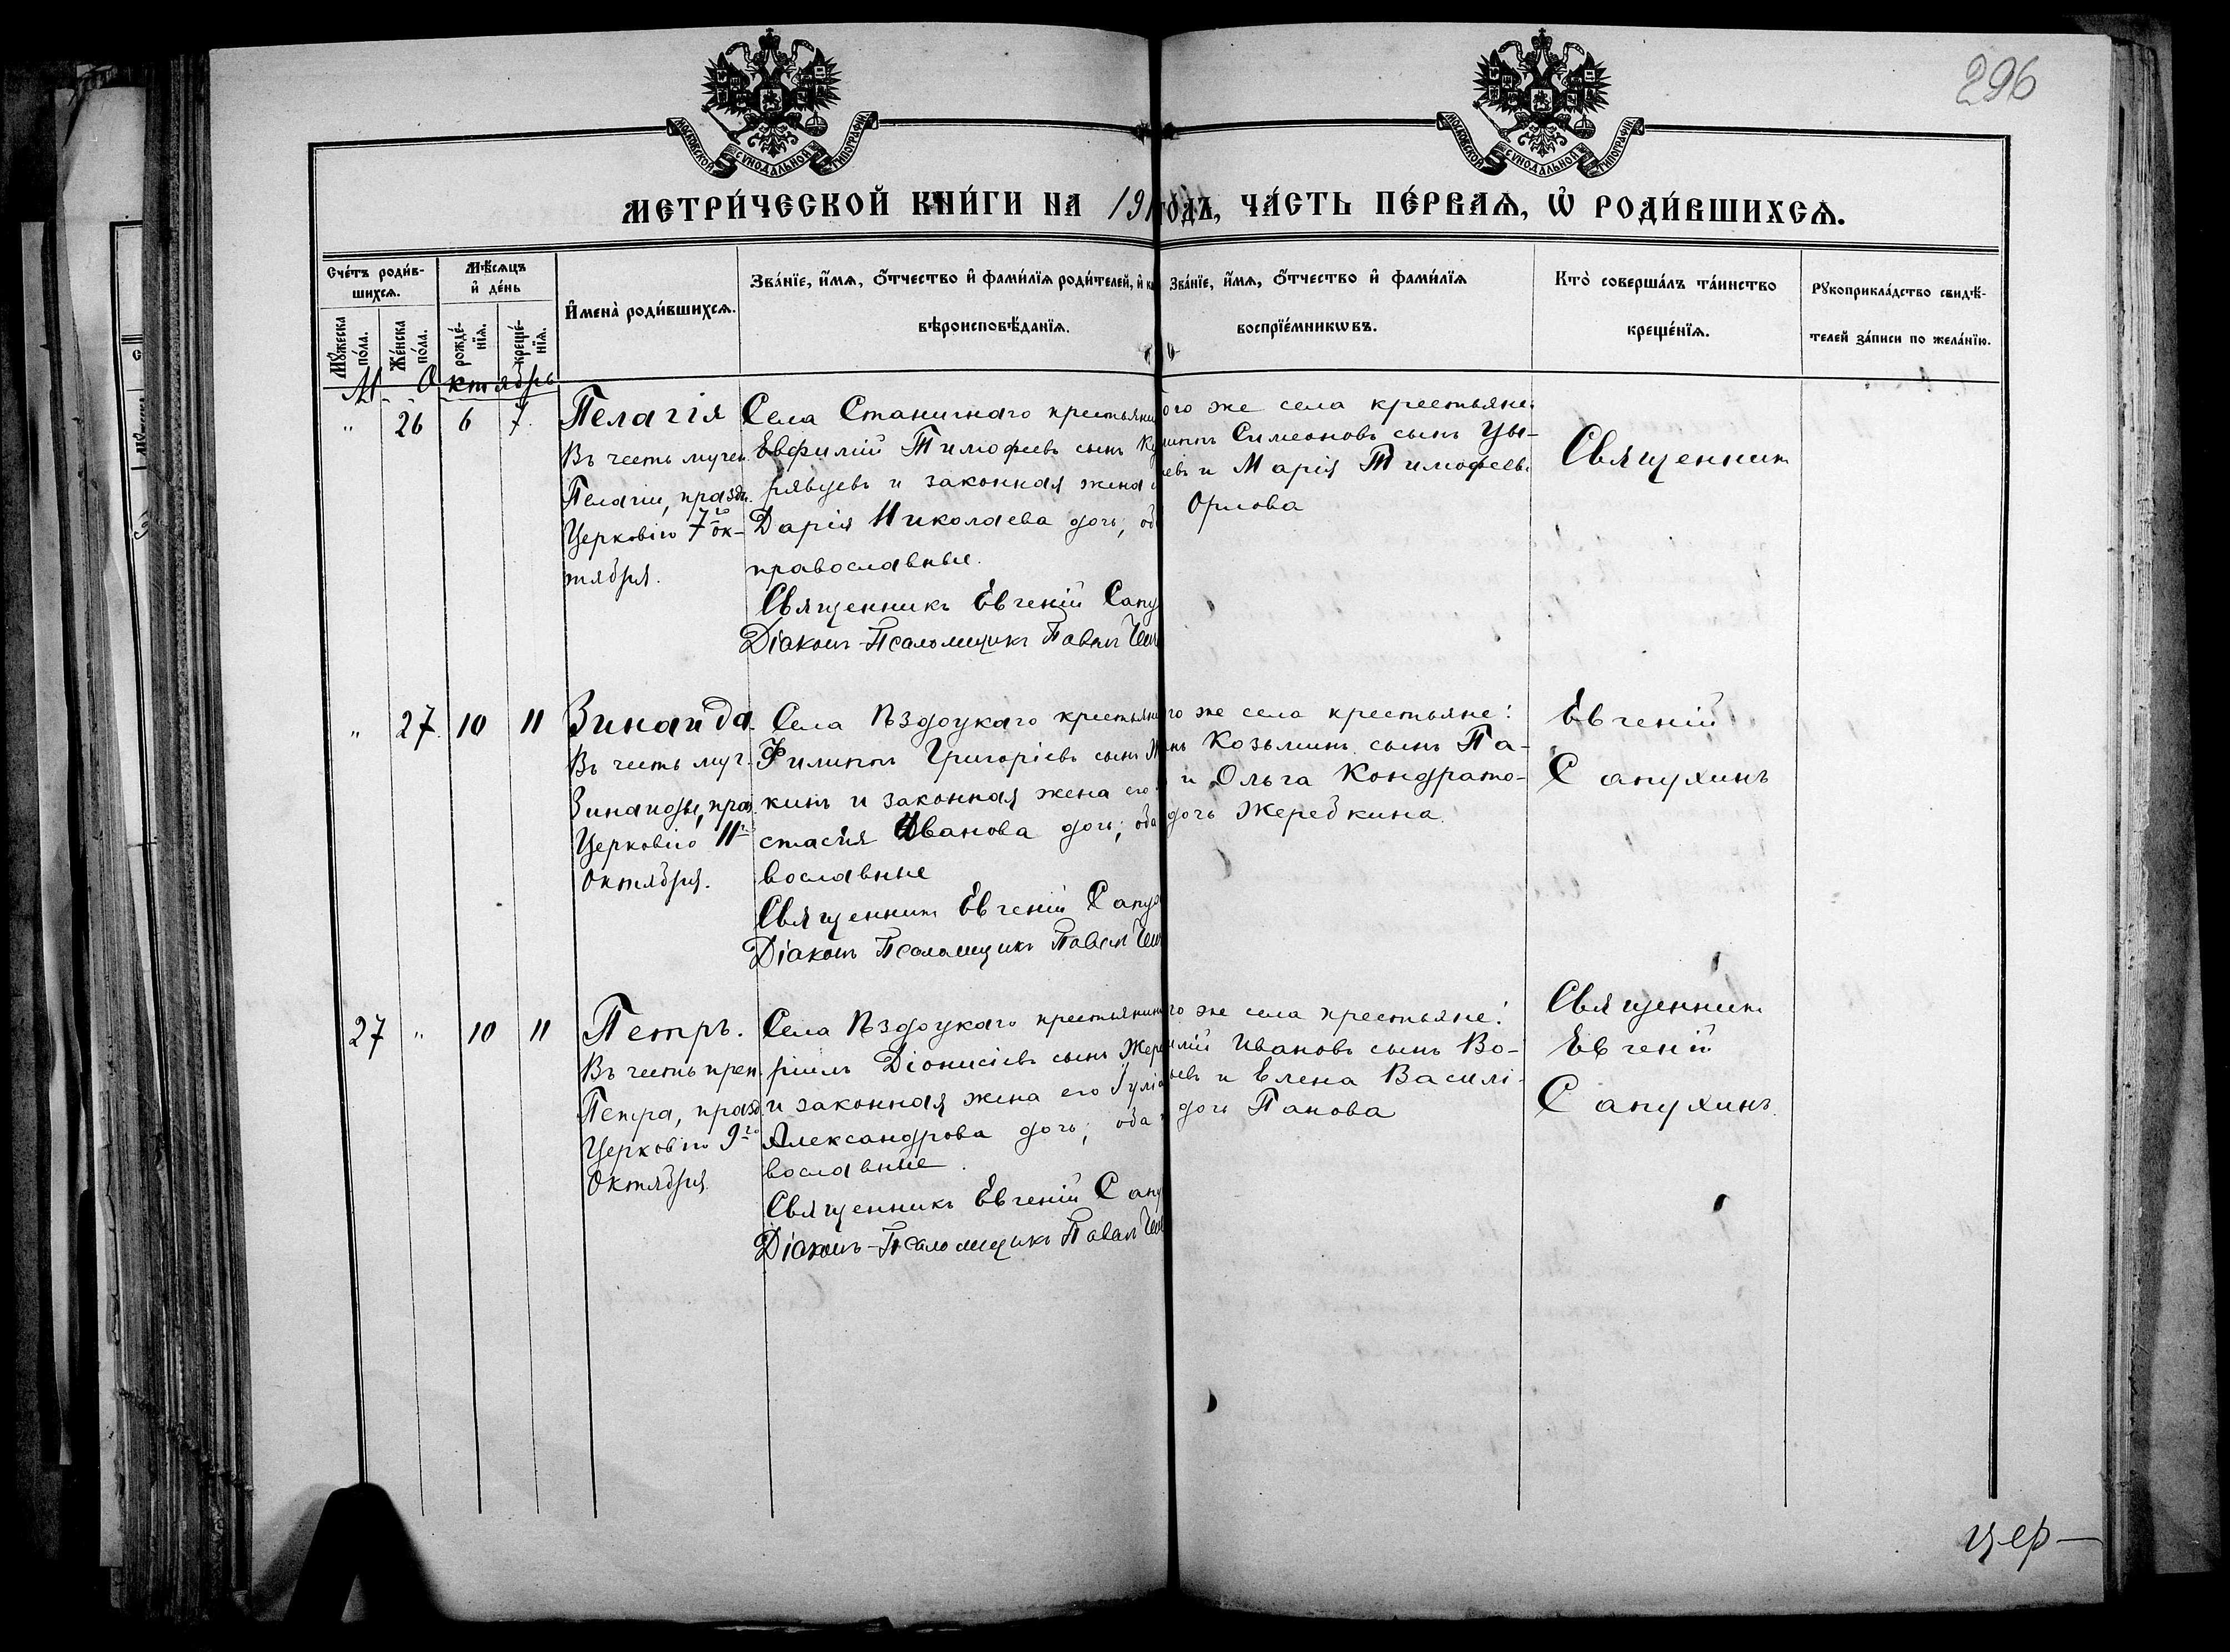 296
МОСКОВСКОЙ СѴНОДАЛЬНОЙ ТИПОГРАФІИ
МОСКОВСКОЙ СѴНОДАЛЬНОЙ ТИПОГРАФІИ
МЕТРИ́ЧЕСКОЙ КНИ́ГИ НА 191 го́дъ, ЧА́СТЬ ПЕ́РВАѦ, Ѡ҆ РОДИ́ВШИХСѦ.
Сче́тъ роди́в-
шихсѧ.
Мꙋ́жеска по́ла.
Же́нска по́ла.
Мѣ́сѧцъ
и҆ де́нь
рожде́-
нїѧ.
креще́-
нїѧ.
И҆мена̀ роди́вшихсѧ.
Зва́нїе, и҆́мѧ, ѻ҆́тчество и҆ фами́лїѧ роди́телей, и҆
вѣроисповѣ́данїѧ.
Зва́нїе, и҆́мѧ, ѻ҆́тчество и҆ фами́лїѧ
воспрїе́мникѡвъ.
Кто̀ соверша́лъ та́инство
креще́нїѧ.
Рꙋкоприкла́дство свидѣ́-
телей за́писи по жела́нїю.
М. Октябрь
" 26 6 7.
Пелагія
Въ честь мучен.
Пелагіи, празд.
Церковію 7го ок-
тября.
Села Станичнаго крестьяни
Евфимій Тимофеевъ сынъ Ку
рявцевъ и законная жена
Дарія Николаева дочь; об
православные.
Священникъ Евгеній Сапу
Діаконъ-Псаломщикъ Павелъ
ого же села крестьяне:
липпъ Симеоновъ сынъ Цы-
евъ и Марія Тимофеев.
Орлова
Священник
" 27. 10 11
Зинаида.
Въ честь муч.
Зинаиды, праз
Церковію 11го
Октября.
Села Ѣздоцкаго крестьяни
Филиппъ Григоріевъ сынъ
кинъ и законная жена его
стасія Иванова дочь; оба
вославные
Священник Евгеній Сапу
Діаконъ Псаломщикъ Павелъ
го же села крестьяне:
нъ Козьминъ сынъ Па-
и Ольга Кондрато-
дочь Жеребкина
Евгеній
Сапухинъ
27 " 10 11
Петръ.
Въ честь преп.
Петра, празд
Церковію 9го
Октября
Села Ѣздоцкаго крестьянин
ріилъ Діонисіевъ сынъ Жере
и законная жена его Іуліа
Александрова дочь; оба
вославные.
Священникъ Евгеній Сапу
Діаконъ-Псаломщикъ Павелъ
го же села крестьяне:
илій Ивановъ сынъ Во-
евъ и Елена Василі-
дочь Панова
Священник
Евгеній
Сапухинъ.
цер-